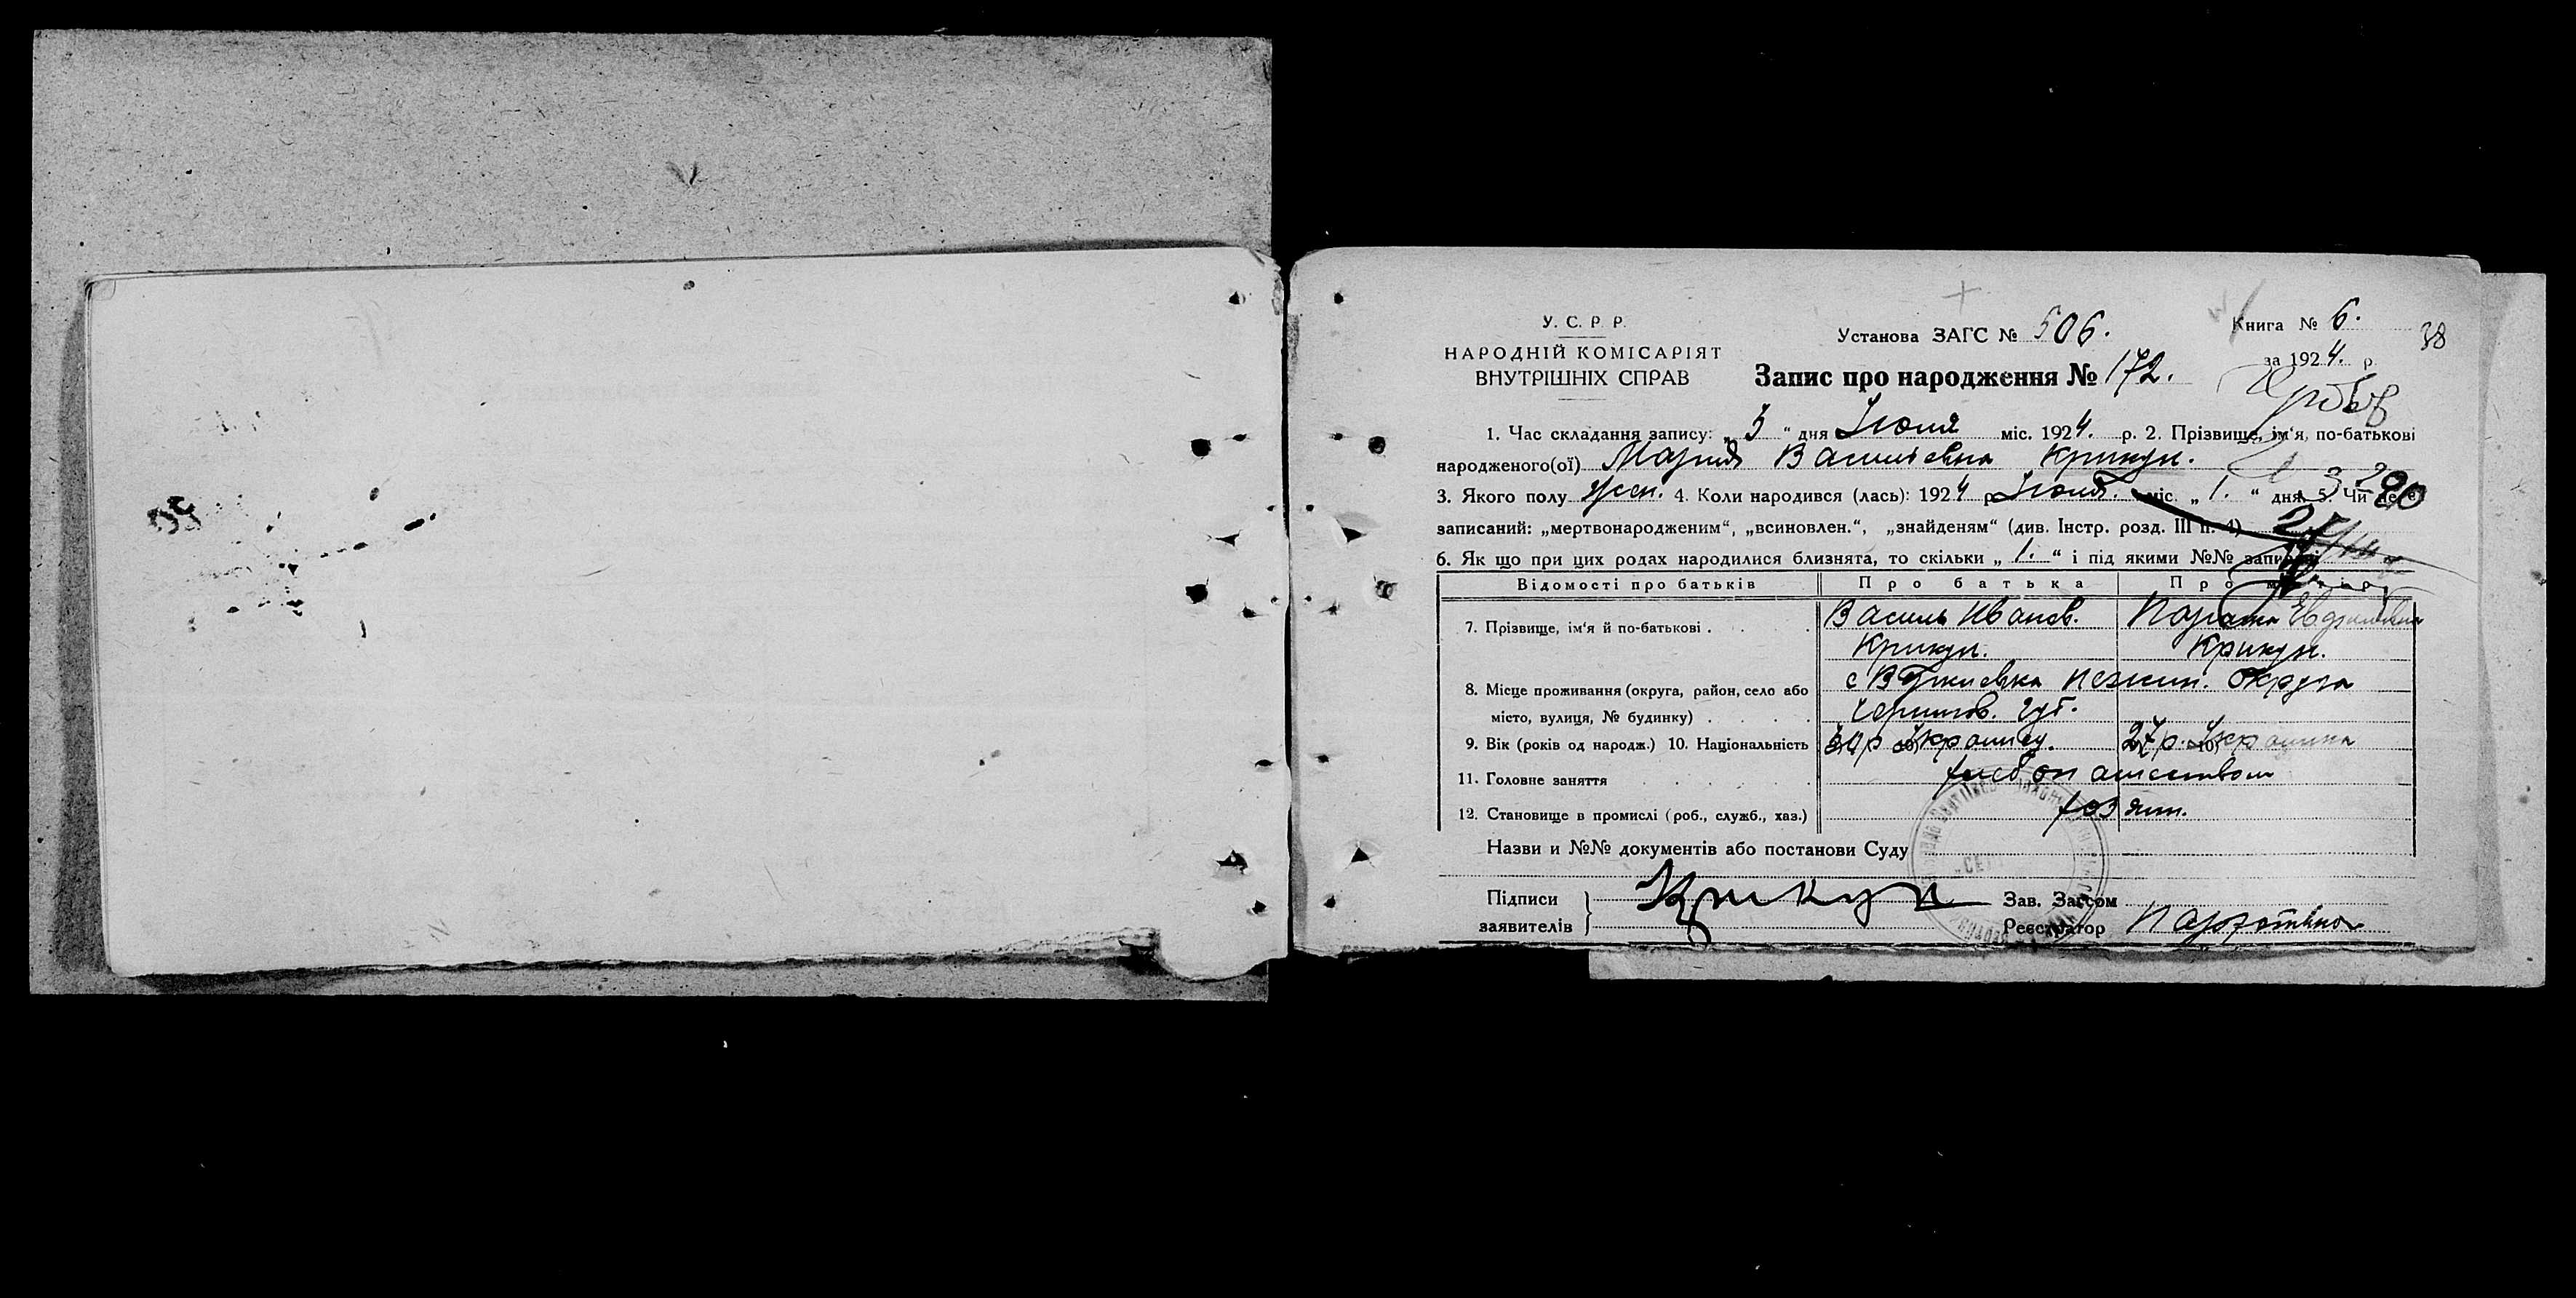 У. С. Р. Р.
НАРОДНІЙ КОМІСАРІЯТ
ВНУТРІШНІХ СПРАВ
Установа ЗАГС № 506.
Запис про народження № 172.
Книга № 6.
за 1924. р.
38
1. Час складання запису: „ 3 “ дня Июня міс. 1924. р. 2. Прізвище, ім'я, по-батькові
народженого(ої) Мария Васильевна Крикун.
3. Якого полу жен. 4. Коли народився (лась): 1924 р. Июня. міс. „ 1. “ дня. 5. Чи не є
записаний: „мертвонародженим“, „всиновлен.“, „знайденям“ (див. Інстр. розд. III п. 4)
6. Як що при цих родах народилися близнята, то скільки „ 1. “ і під якими №№ записані
Відомості про батьків Про батька Про матір
7. Прізвище, ім'я й по-батькові . . . Василь Иванов. Крикун.
Крикун.
8. Місце проживання (округа, район, село або
місто, вулиця, № будинку) . . . . с Нежин. округа
Чернигов. губ.
9. Вік (років од народж.) 10. Національність 30 р 10) Украинец. 27 р. 10) Украинка
11. Головне заняття . . . . хлебопашеством
12. Становище в промислі (роб., служб., хаз.) хозяин.
Назви и №№ документів або постанови Суду
Підписи
заявителів
Крикун
Зав. Загсом
Реєстратор